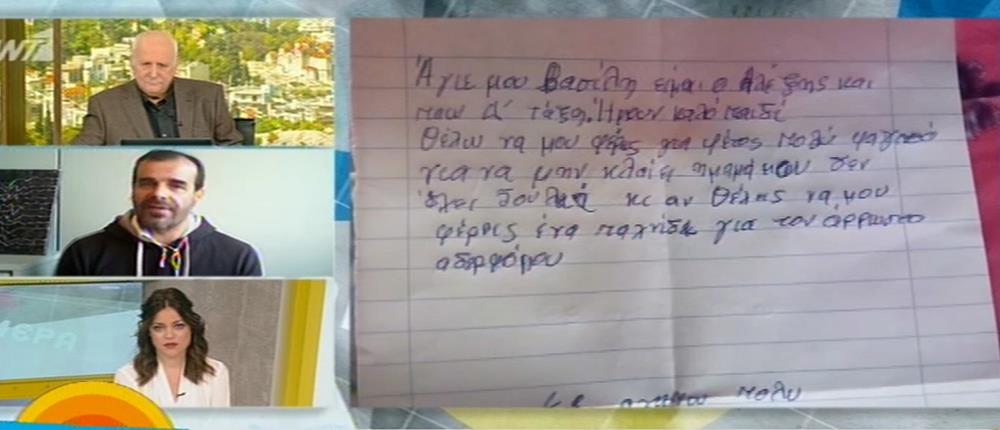 ΝΤ1
ΜΕΡΑ
Άγιε μου Βασίλη είμαι ο Αλέξης και
παω Α' τάξη. Ήμουν καλό παιδί
Θέλω να μου φέρις για φέτος πολύ φαγητό
για να μην κλαίει η μαμά μου δεν
έχει δουλιά κι αν θέλης να μου
φέρης ένα παχνίδι για τον άρρωστο
αδερφόμου
Σε αγαπου πολυ